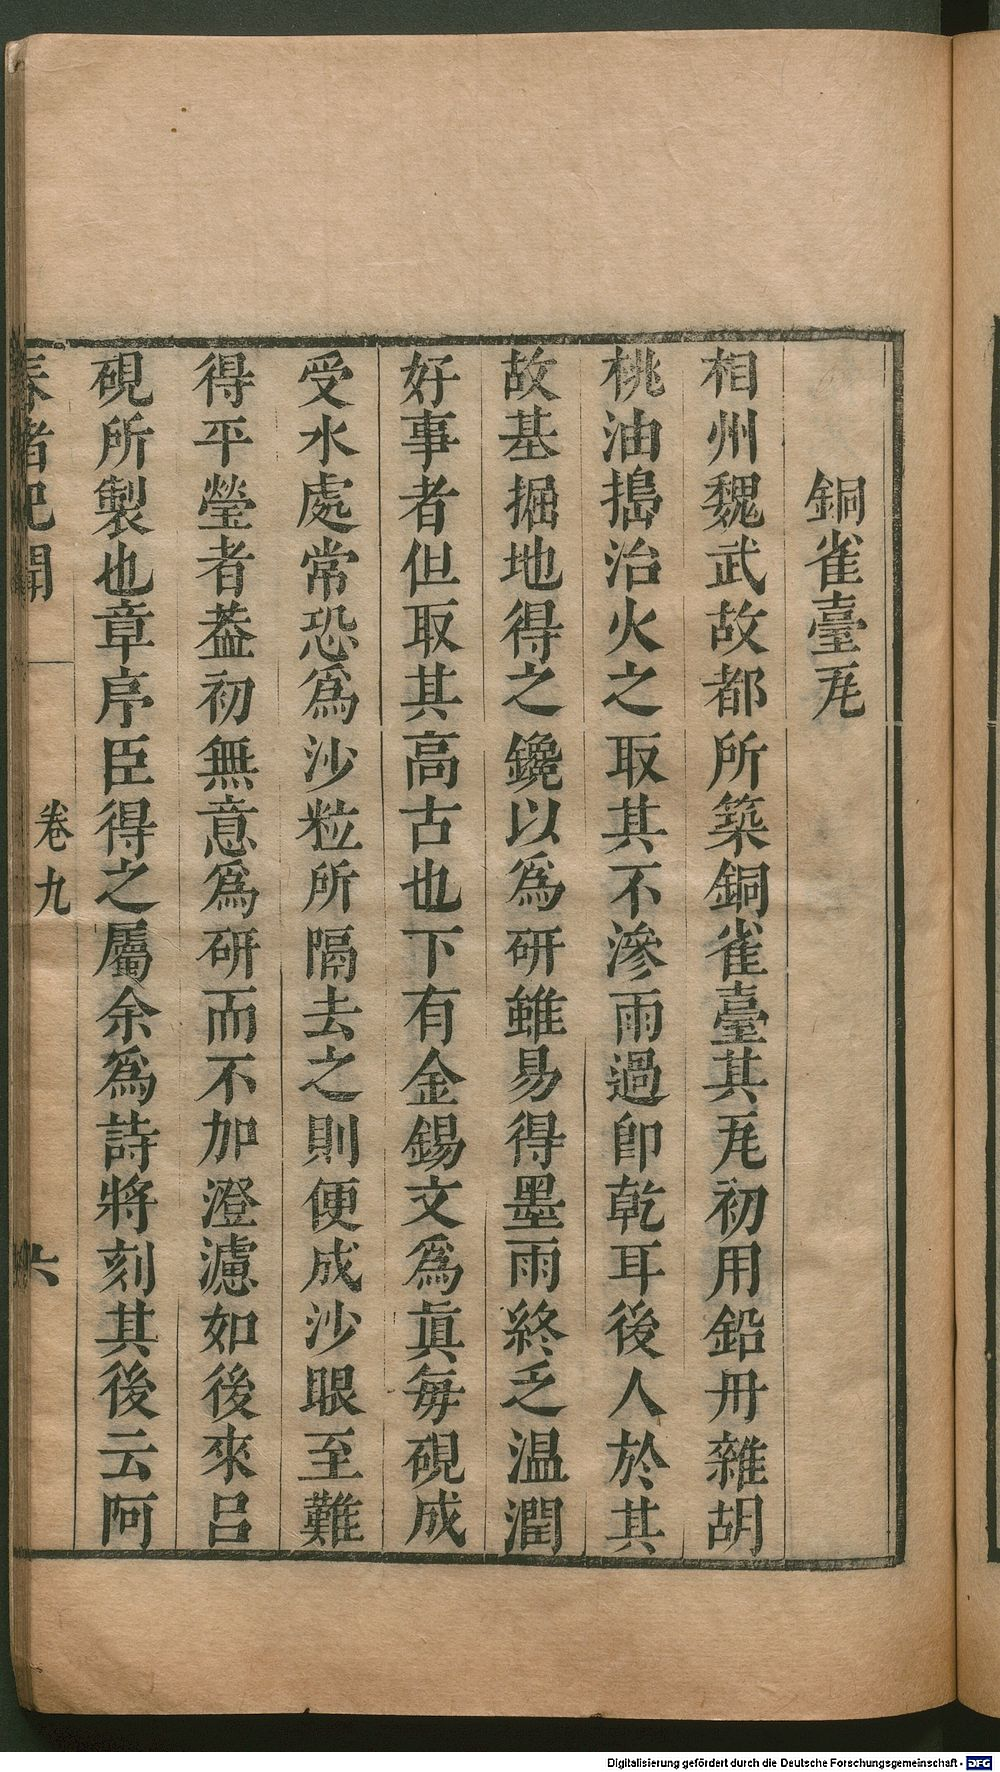 銅雀臺𤬦
相州魏武故都所築銅雀臺其𤬦初用鉛丹雜胡
桃油搗治火之取其不滲雨過卽乾耳後人於其
故基掘地得之鑱以爲研雖易得墨雨終乏温潤
好事者但取其高古也下有金錫文爲眞每硯成
受水處常恐爲沙粒所隔去之則便成沙眼至難
得平瑩者葢初無意爲研而不加澄濾如後來呂
硯所製也章序臣得之屬余爲詩將刻其後云阿
春渚紀聞
卷九
六
Digitalisierung gefördert durch die Deutsche Forschungsgemeinschaft - DFG